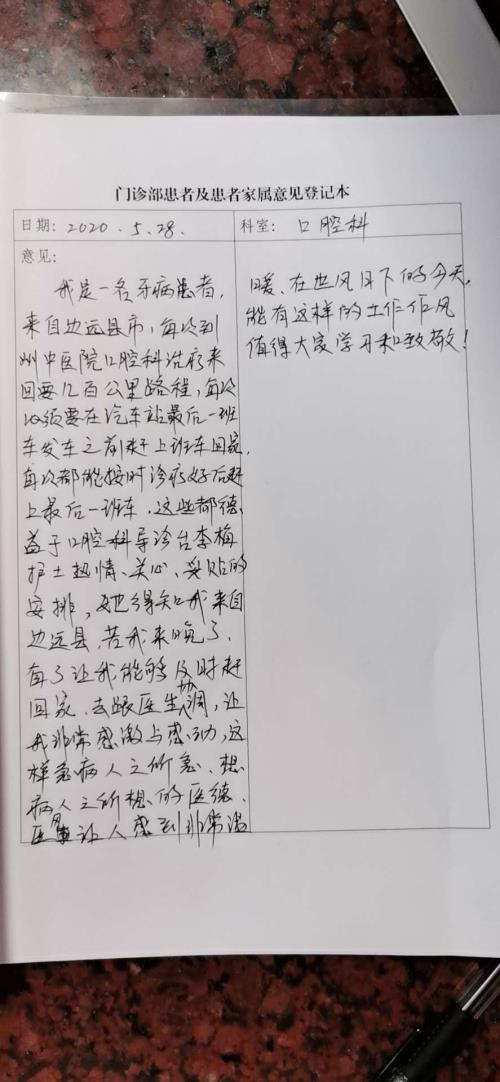 门诊部患者及患者家属意见登记本
日期：2020.5.28.
科室：口腔科
意见：
我是一名牙病患者，
来自边远县市，每次到
州中医院口腔科治疗来
回要几百公里路程，每次
必须要在汽车站最后一班
车发车之前赶上班车回家，
每次都能按时诊疗好后赶
上最后一班车，这些都德
益于口腔科导诊台李梅
护士热情、关心、妥贴的
安排，她得知我来自
边远县，若我来晚了，
为了让我能够及时赶
回家，去跟医生协调，让
我非常感激与感动，这
样急病人之所急、想
病人之所想的医德、
医风让人感到非常温
暖、在世风日下的今天，
能有这样的工作作风
值得大家学习和致敬！